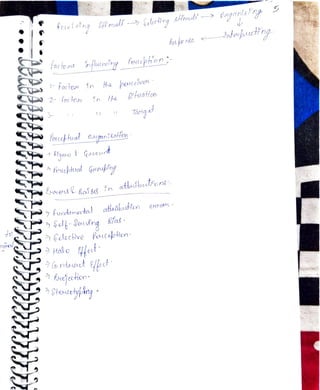 5
Receiving Stimuli → Selecting stimuli → Organizing
↓
Response ← Interpreting
Factors Influencing Perception:-
1- Factors in the perceiver-
2- Factors in the Situation
3- " " " Target
Perceptual organization-
→ Figure & Ground
→ Perceptual Grouping
Errors & Biases in attributions-
→ Fundamental attribution errors-
→ Self-Serving Bias-
→ Selective Perception-
→ Halo Effect-
→ Contrast Effect-
→ Projection-
→ Stereotyping-